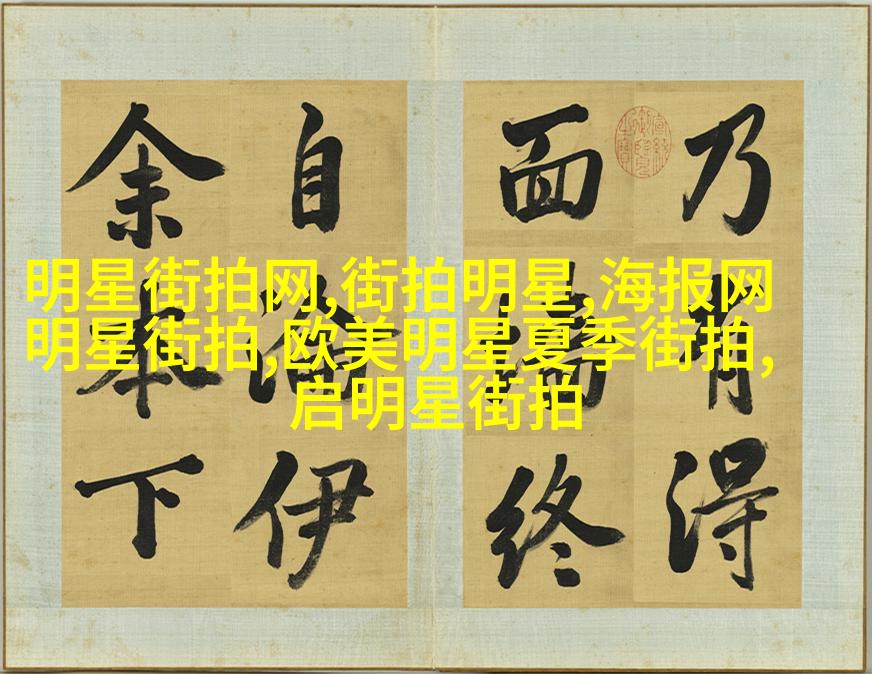 明星街拍网,街拍明星,海报网
明星街拍,欧美明星夏季街拍,
启明星街拍
乃得
面终
自伊
余本下